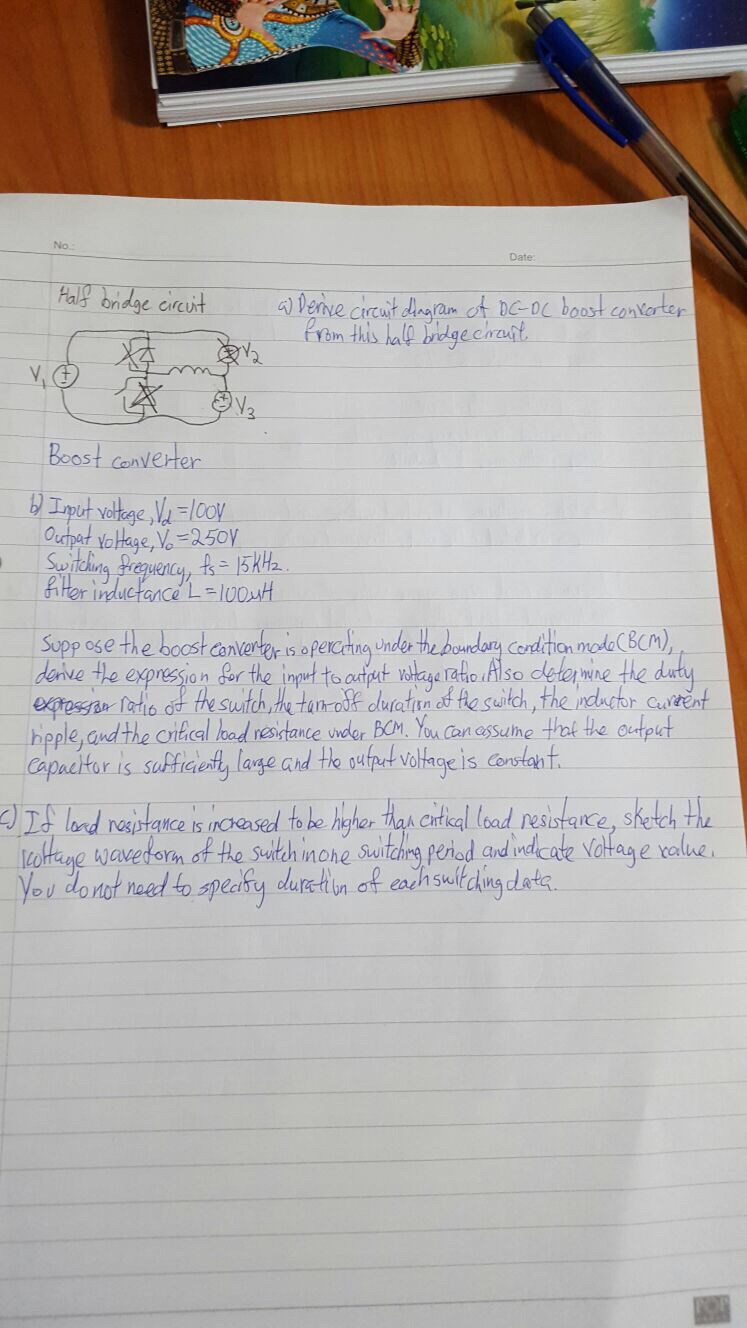 No.:
Date:
Half bridge circuit
a) Derive circuit diagram of DC-DC boost converter
from this half bridge circuit.
V1
V2
V3
Boost converter
b) Input voltage, Vd = 100V
Output voltage, Vo = 250V
Switching frequency, fs = 15kHz.
filter inductance L = 100uH
Suppose the boost converter is operating under the boundary condition mode (BCM),
derive the expression for the input to output voltage ratio. Also determine the duty
expression ratio of the switch, the turn-off duration of the switch, the inductor current
ripple, and the critical load resistance under BCM. You can assume that the output
capacitor is sufficiently large and the output voltage is constant.
c) If load resistance is increased to be higher than critical load resistance, sketch the
voltage waveform of the switch in one switching period and indicate voltage value.
You do not need to specify duration of each switching data.
POP